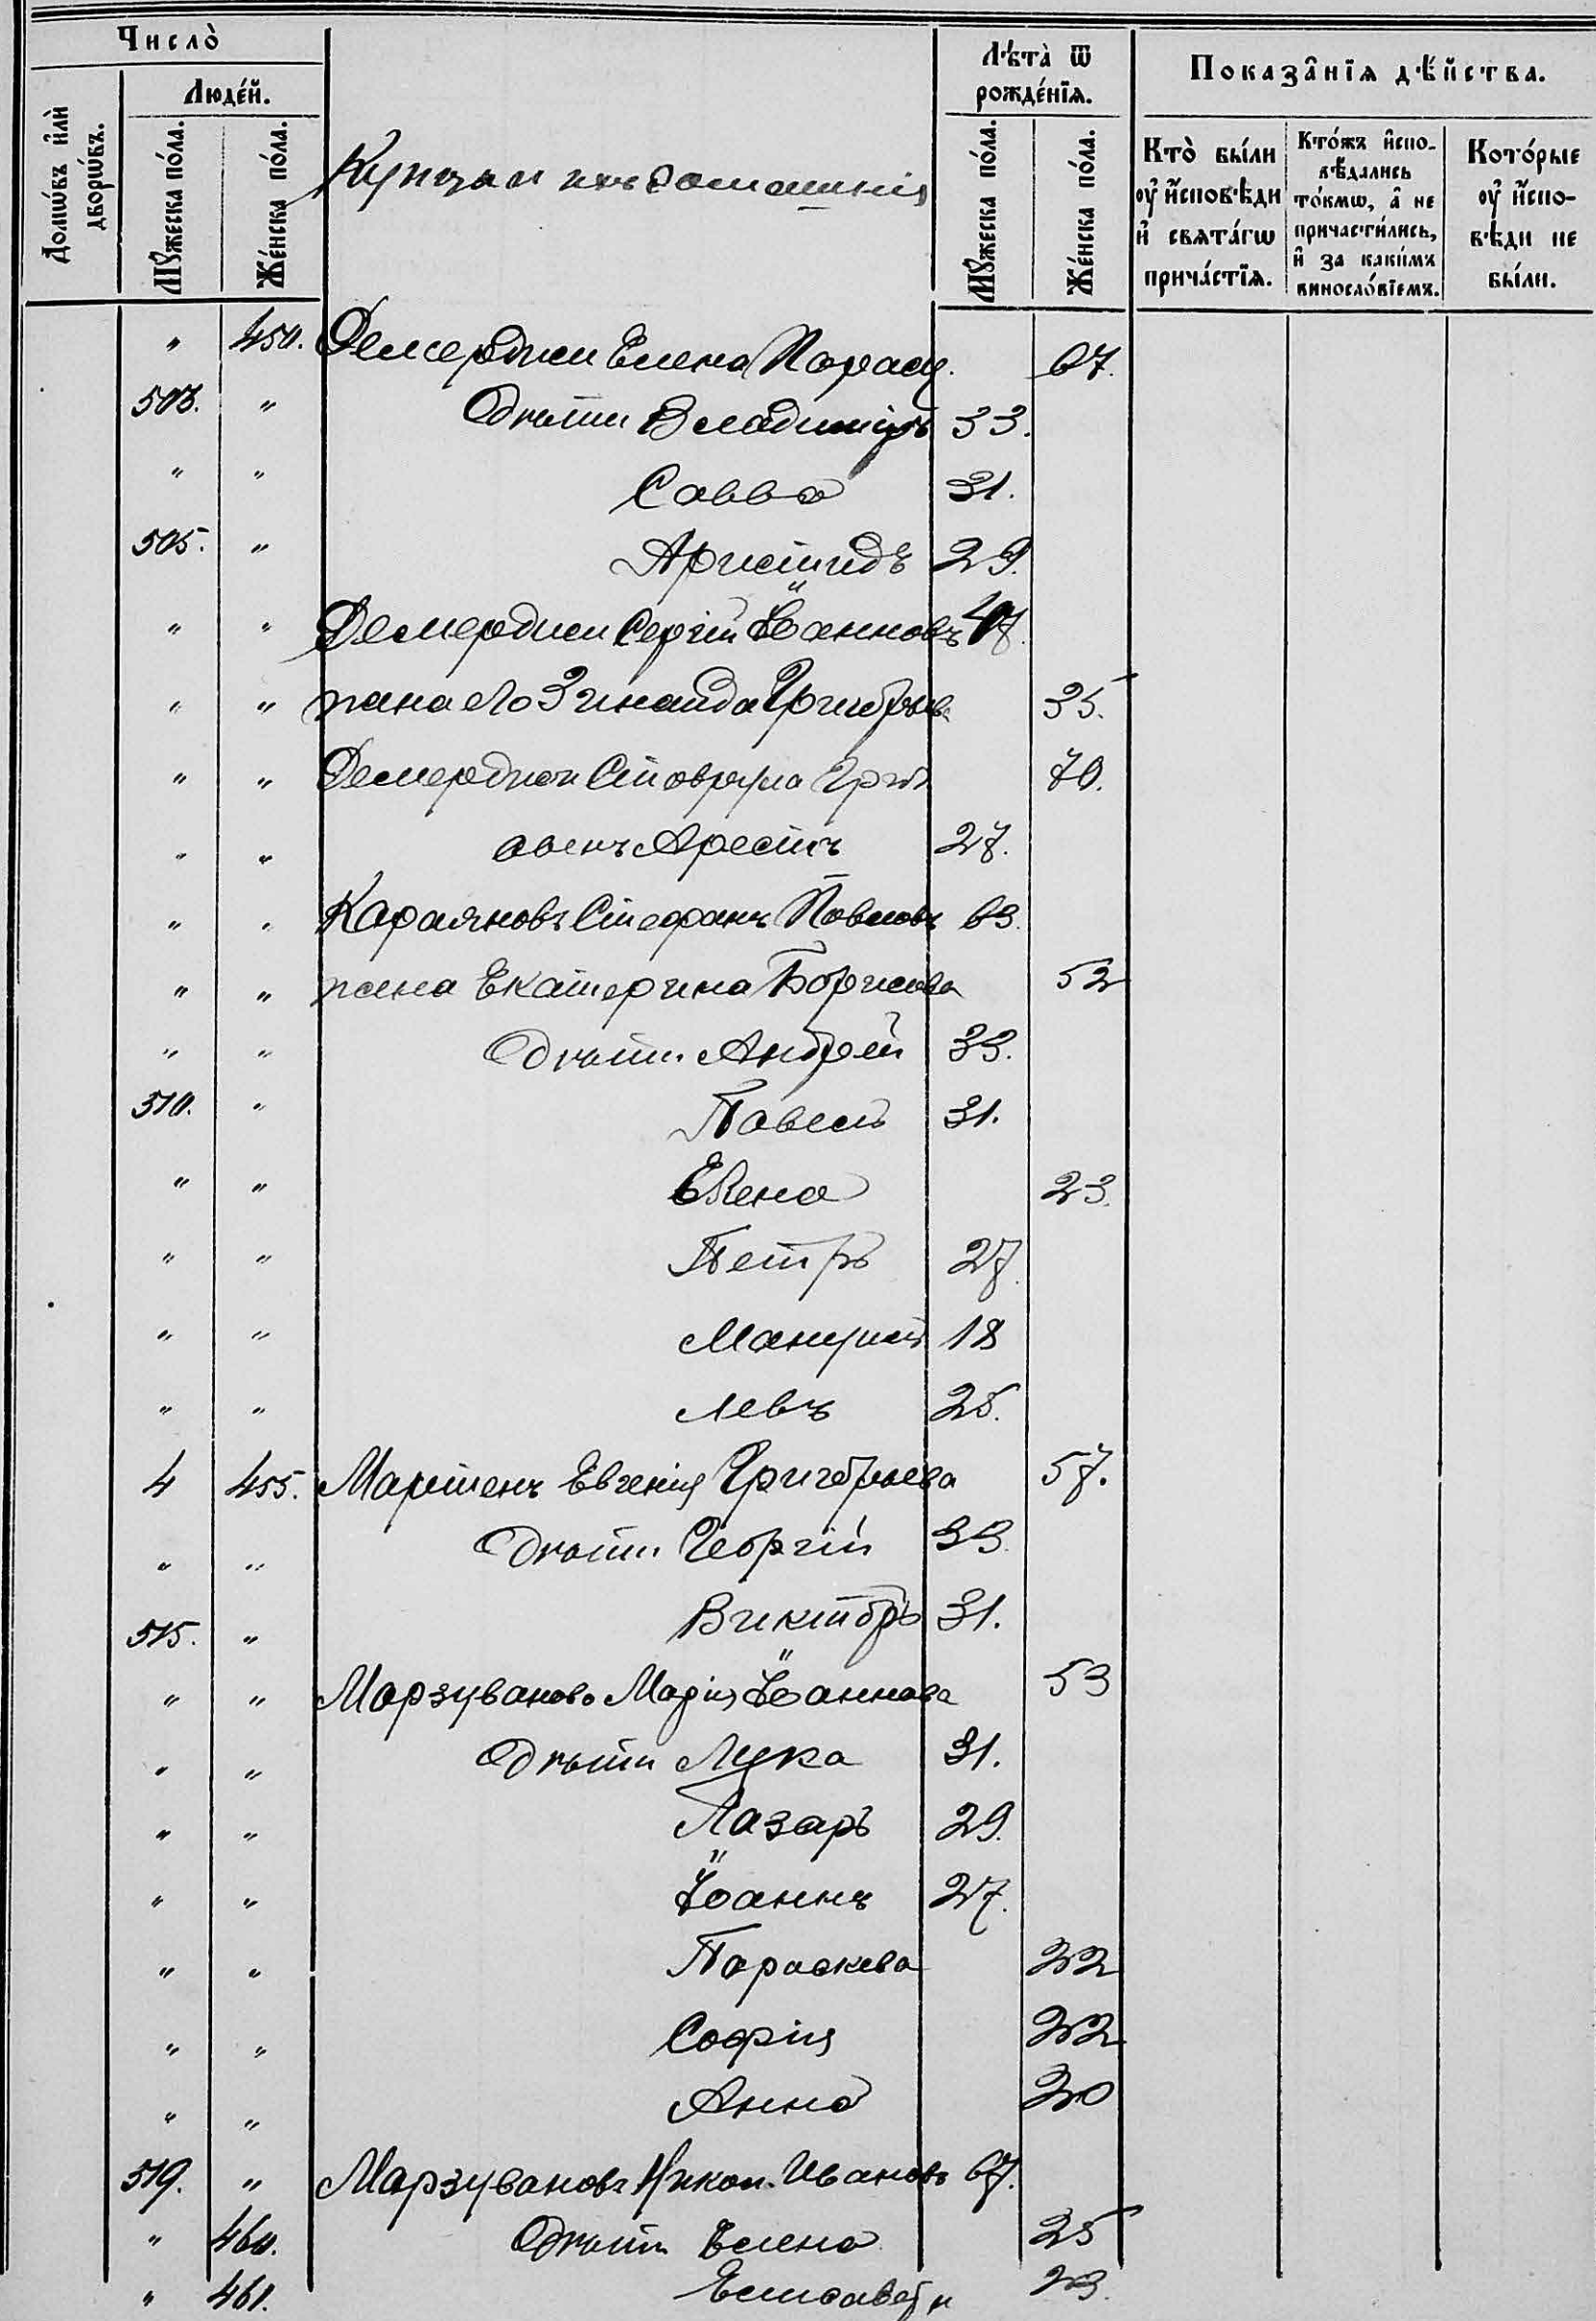 Число̀
Люде́й.
Домѡ́въ и҆лѝ дворѡ́въ.
Мꙋ́жеска по́ла.
Же́нска по́ла.
Купцы и ихъ домашнія
Лѣта̀ ѿ рожде́нїѧ.
Мꙋ́жеска по́ла.
Же́нска по́ла.
Показа̑нїѧ дѣ́йства.
Кто̀ бы́ли оу҆ и҆́сповѣди и҆ свѧта́гѡ прича́стїѧ.
Кто́жъ и҆спо-вѣ́дались то́кмѡ, а҆ не причасти́лись, и҆ за каки́мъ винословїемъ.
Кото́рые оу҆ и҆́спо-вѣди не бы́ли.
" 450. Демерджи Елена Парас. 67.
503. " Дѣти Владиміръ 33.
" " Савва 31.
505. " Аристидъ 29.
" " Демерджи Сергій Іоанновъ 47.
" " жена его Зинаида Григорьев. 35.
" " Демерджи Ставрула Григ. 70.
" " сынъ Арестъ 27.
" " Караяновъ Стефанъ Павловъ 63.
" " жена Екатерина Борисова 52
" " Дѣти Андрей 33.
510. " Павелъ 31.
" " Елена 23.
" " Петръ 27.
" " Мануилъ 18
" " Левъ 25.
4 455. Мартенъ Евгенія Григорьева 57.
" " Дѣти Георгій 33.
515. " Викторъ 31.
" " Марзуванова Марія Іоаннова 53
" " Дѣти Лука 31.
" " Лазарь 29.
" " Іоаннъ 27.
" " Параскева 22
" " Софія 22
" " Анна 20
519. " Марзувановъ Никол. Ивановъ 67.
" 460. Дѣти Елена 25
" 461. Елисавета 23.